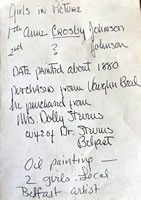 Girls in Picture
Anne CROSBY Johnson
2nd ? Johnson
DATE painted about 1880
purchased from Vaughn Beal
he purchased from
Mrs Dolly
wife of Dr.
Belfast
Oil painting —
2 girls. Local
Belfast artist